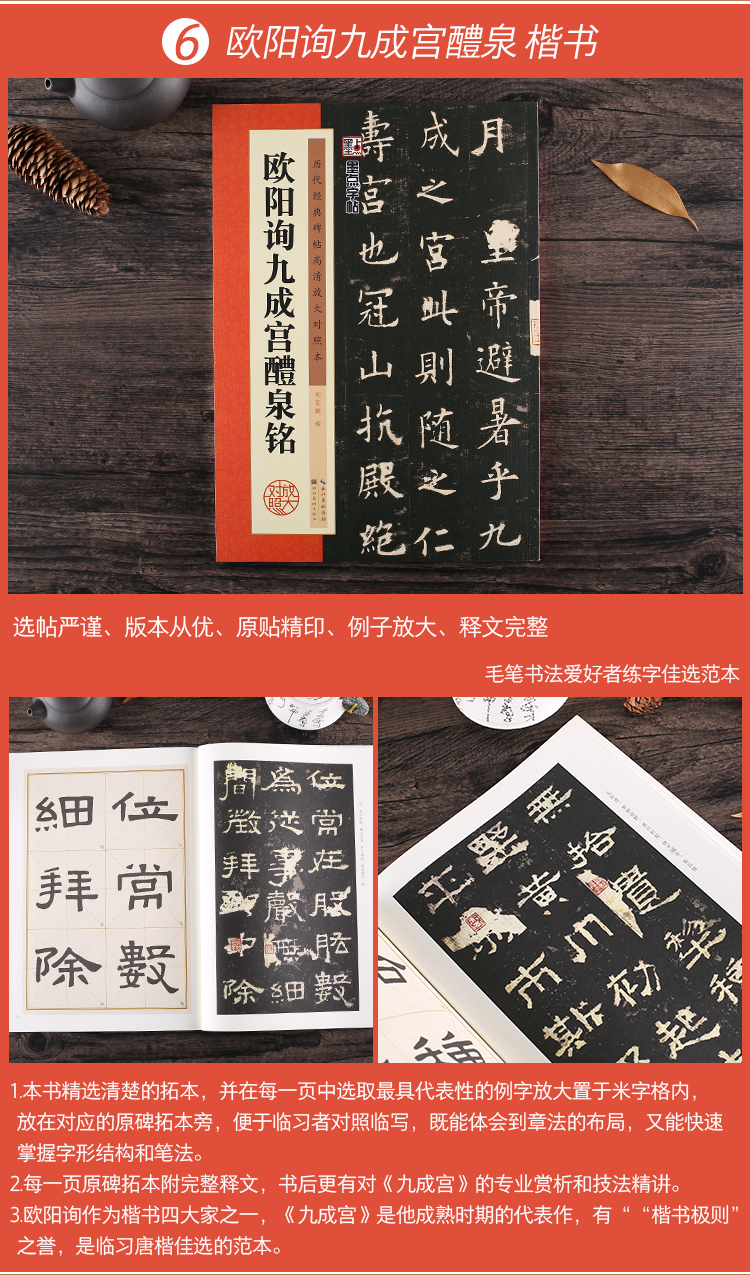 6 欧阳询九成宫醴泉 楷书
欧阳询九成宫醴泉铭
历代经典碑帖高清放大对照本
墨点字帖
放大对照
月
皇帝避暑乎九
成之宫此則随之仁
壽宫也冠山抗殿絶
选帖严谨、版本从优、原贴精印、例子放大、释文完整
毛笔书法爱好者练字佳选范本
位當數
細拜除
位當在服胘數
爲從事
無細
間徵拜
中除
無
黄巾
1.本书精选清楚的拓本，并在每一页中选取最具代表性的例字放大置于米字格内，
放在对应的原碑拓本旁，便于临习者对照临写，既能体会到章法的布局，又能快速
掌握字形结构和笔法。
2.每一页原碑拓本附完整释文，书后更有对《九成宫》的专业赏析和技法精讲。
3.欧阳询作为楷书四大家之一，《九成宫》是他成熟时期的代表作，有“ “楷书极则”
之誉，是临习唐楷佳选的范本。